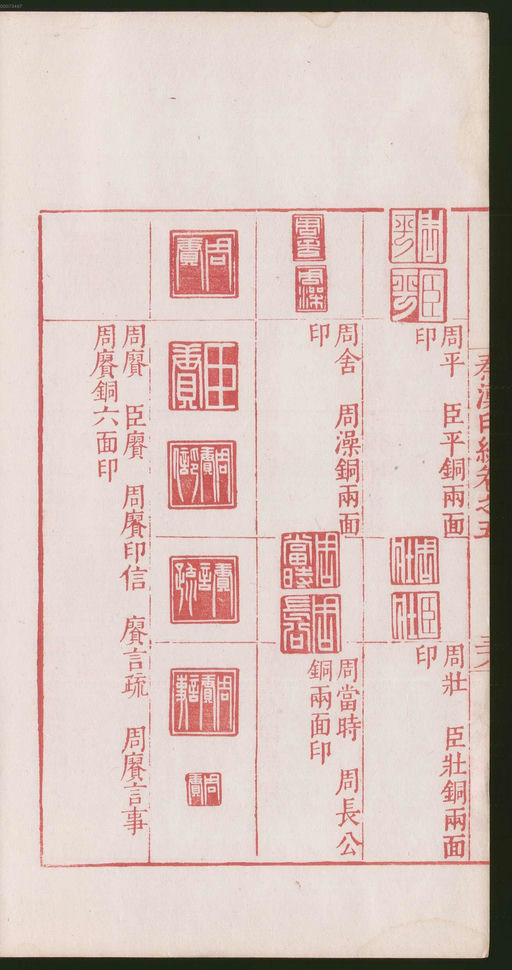 00073447
秦漢印統卷之五
周平　臣平銅兩面
印
周壯　臣壯銅兩面
印
周舍　周澡銅兩面
印
周當時　周長公
銅兩面印
周賡　臣賡　周賡印信　賡言疏　周賡言事
周賡銅六面印